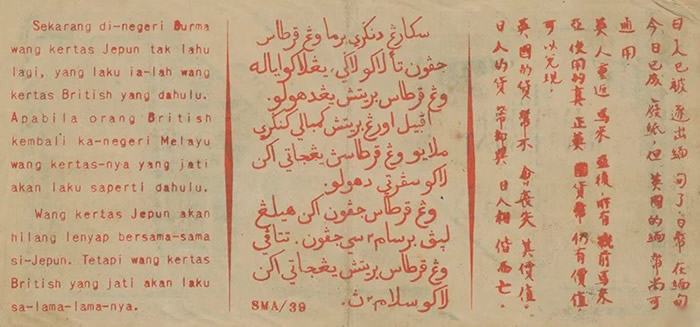 Sekarang di-negeri Burma
wang kertas Jepun tak lahu
lagi, yang laku ia-lah wang
kertas British yang dahulu.
Apabila orang British
kembali ka-negeri Melayu
wang kertas-nya yang jati
akan laku saperti dahulu.
Wang kertas Jepun akan
hilang lenyap bersama-sama
si-Jepun. Tetapi wang kertas
British yang jati akan laku
sa-lama-lama-nya.
سكارڠ دنكري برما وڠ قرطاس
جڤون تأ لاكو لاكي، يڠ لاكو ياله
وڠ قرطاس بريتش يڠ دهولو.
اڤبيل اورڠ بريتش كمبالي كنكري
ملايو وڠ قرطاسڽ يڠ جاتي اكن
لاكو سڤرتي دهولو.
وڠ قرطاس جڤون اكن هيلڠ
لپڤ برسام٢ سي جڤون. تتاڤي
وڠ قرطاس بريتش يڠ جاتي اكن
لاكو سلام٢ ڽ.
SMA/39
日人已被逐出緬甸了日幣在緬甸
今日已成廢紙，但英國的緬幣尚可
通用.
英人重返馬來亞後所有戰前馬來
亞使用的真正英國貨幣仍有價值，
可以兌現，
英國的貨幣不會喪失其價值，
日人的貨幣却與日人相偕而亡.